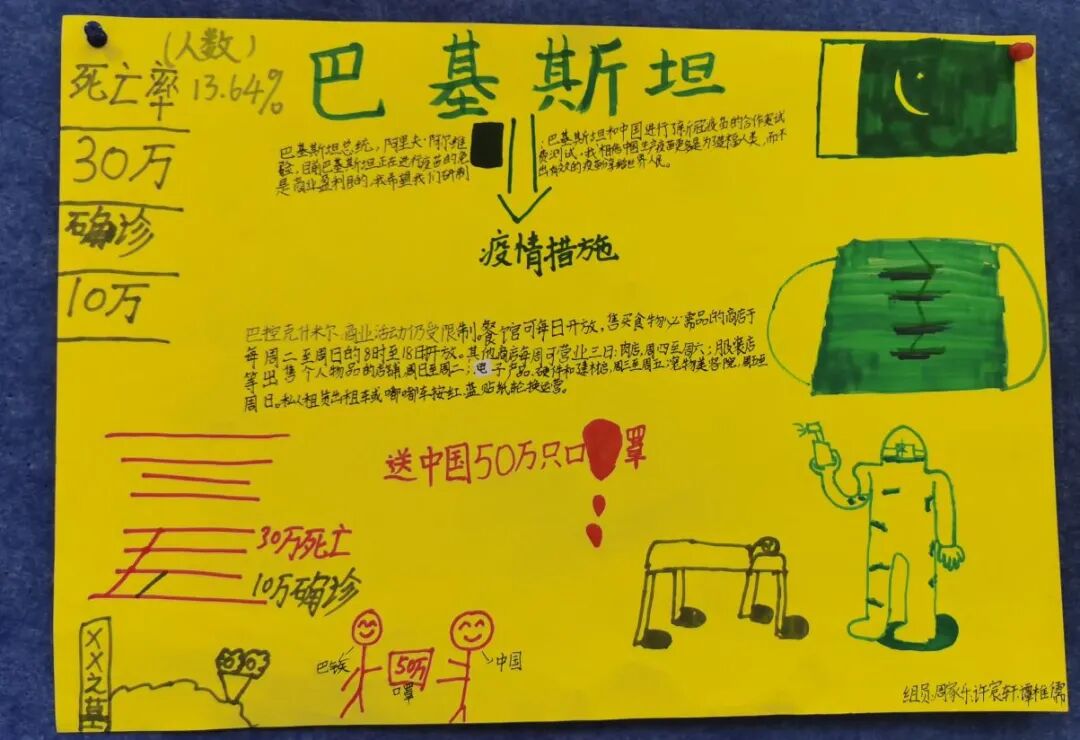 (人数)
死亡率 13.64%
30万
确诊
10万
巴基斯坦
巴基斯坦总统，阿里夫·阿尔维
：巴基斯坦和中国进行了新冠疫苗的合作
验，目前巴基斯坦正在进行疫苗的
是商业盈利目的，我希望我们研制
出有效的疫苗
世界人民。
疫情措施
巴控克什米尔商业活动仍受限制。餐馆可每日开放，售买食物必需品的商店于
每周二至周日的8时至18时开放。其他商店每周可营业三日：肉店，周四至周六；服装店
等出售个人物品的店铺，周日至周二；电子产品、硬件和建材店，周三至周五；宠物美容院，周五至
周日。私人租赁出租车或嘟嘟车按红、蓝贴纸轮换运营。
送中国50万只口罩
30万死亡
10万确诊
XX之墓
巴铁
50万
口罩
中国
组员：周家乐，许宸轩，谭